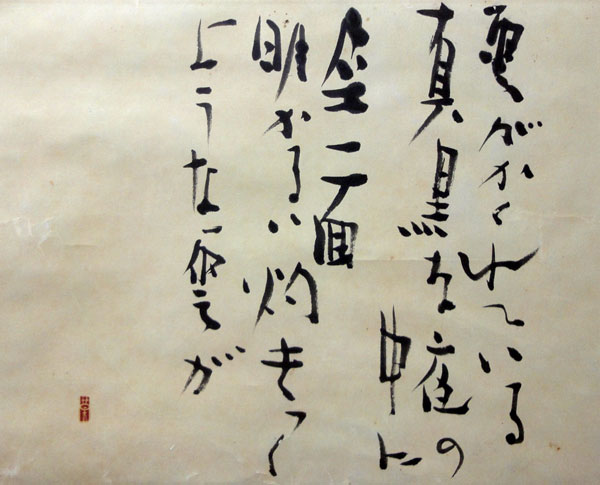 がかくれている
真黒な庭の
中に
空一面
明かるい灼きつく
ような雲が